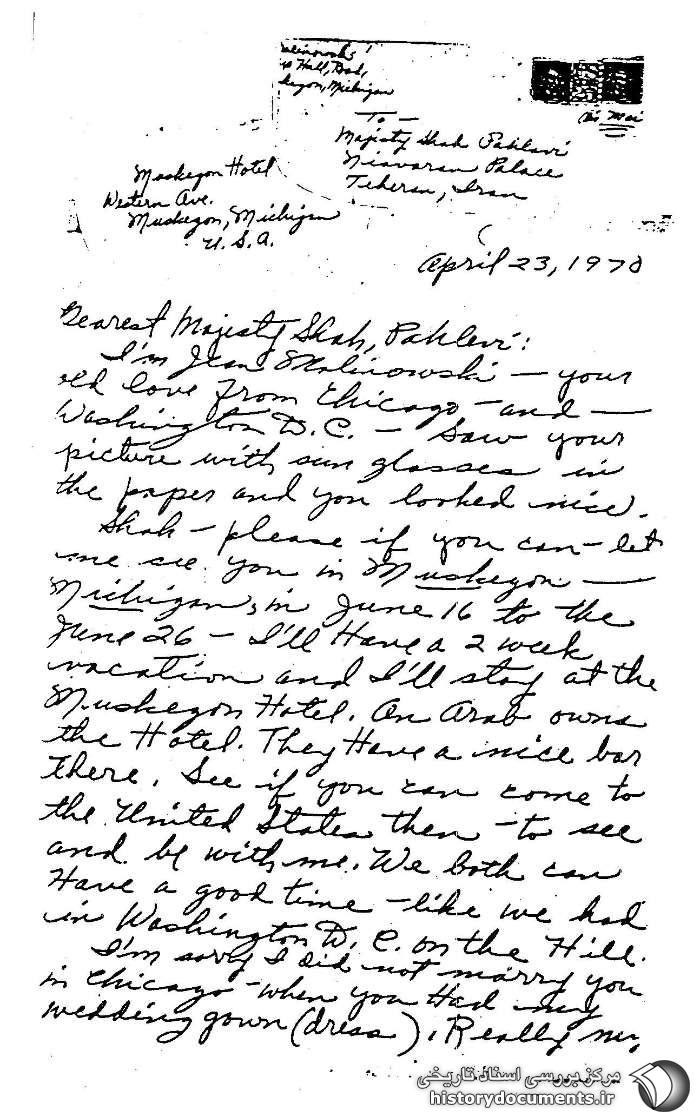 Hall, Road,
Michigan
To -
Majesty Shah Pahlavi
Niavaran Palace
Teheran, Iran
Muskegon Hotel
Western Ave.
Muskegon, Michigan
U.S.A.
April 23, 1970
Dearest Majesty Shah, Pahlevi:
I'm Jean Malinowski — your
old love from Chicago - and —
Washington D.C. - Saw your
picture with sun glasses in
the paper and you looked nice.
Shah - please if you can - let
me see you in Muskegon —
Michigan, in June 16 to the
June 26 - I'll Have a 2 week
vacation and I'll stay at the
Muskegon Hotel. An Arab owns
the Hotel. They Have a nice bar
there. See if you can come to
the United States then - to see
and be with me. We both can
Have a good time - like we had
in Washington D.C. on the Hill.
I'm sorry I did not marry you
in Chicago - when you Had my
wedding gown (dress). Really my,
مرکز بررسی اسناد تاریخی
historydocuments.ir